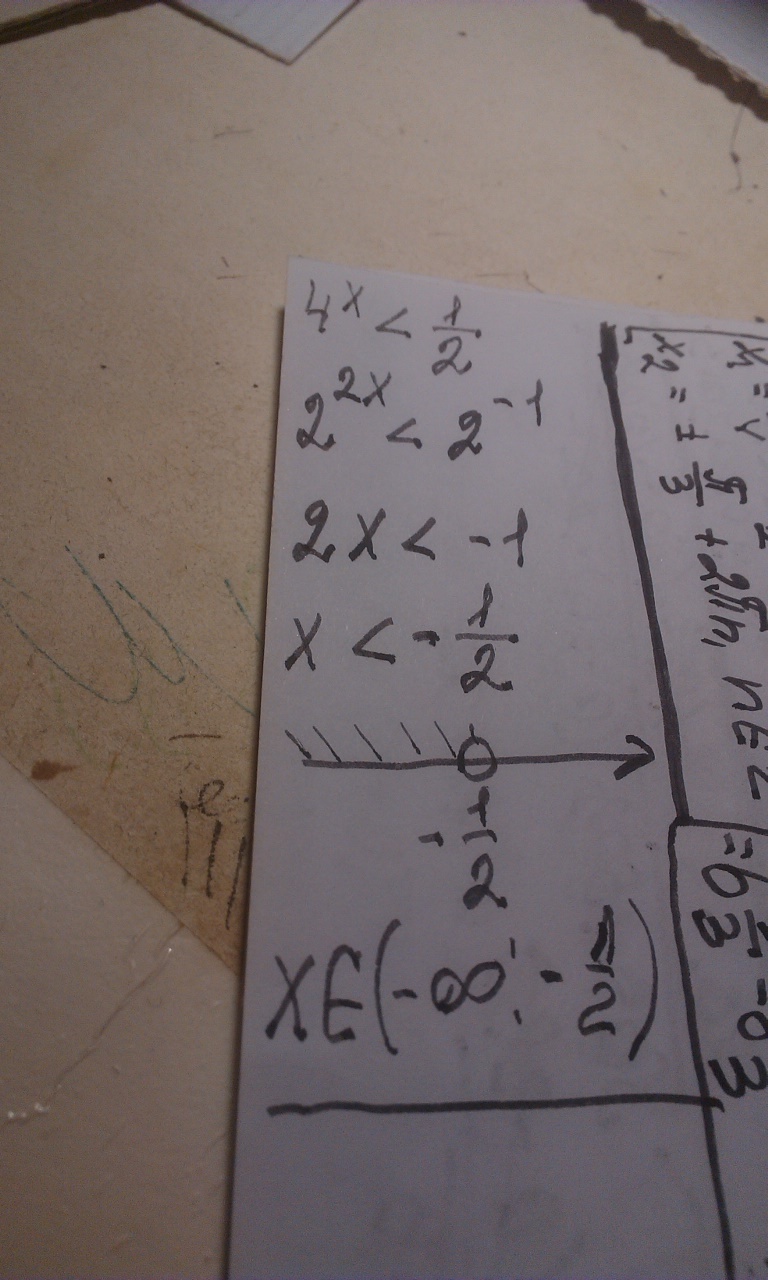 4^x < 1/2
2^2x < 2^-1
2x < -1
x < -1/2
-1/2
x∈(-∞; -1/2)
x2 = ± π/3 + 2πn, n∈Z